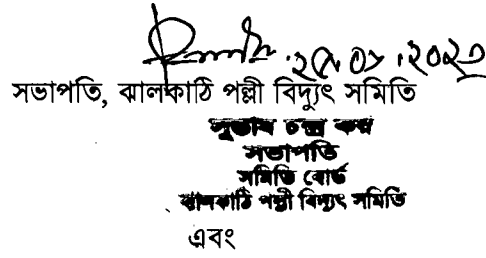 ২৫.০১.২০২৩
সভাপতি, ঝালকাঠি পল্লী বিদ্যুৎ সমিতি
সুভাষ চন্দ্র
সভাপতি
সমিতি বোর্ড
ঝালকাঠি পল্লী বিদ্যুৎ সমিতি
এবং